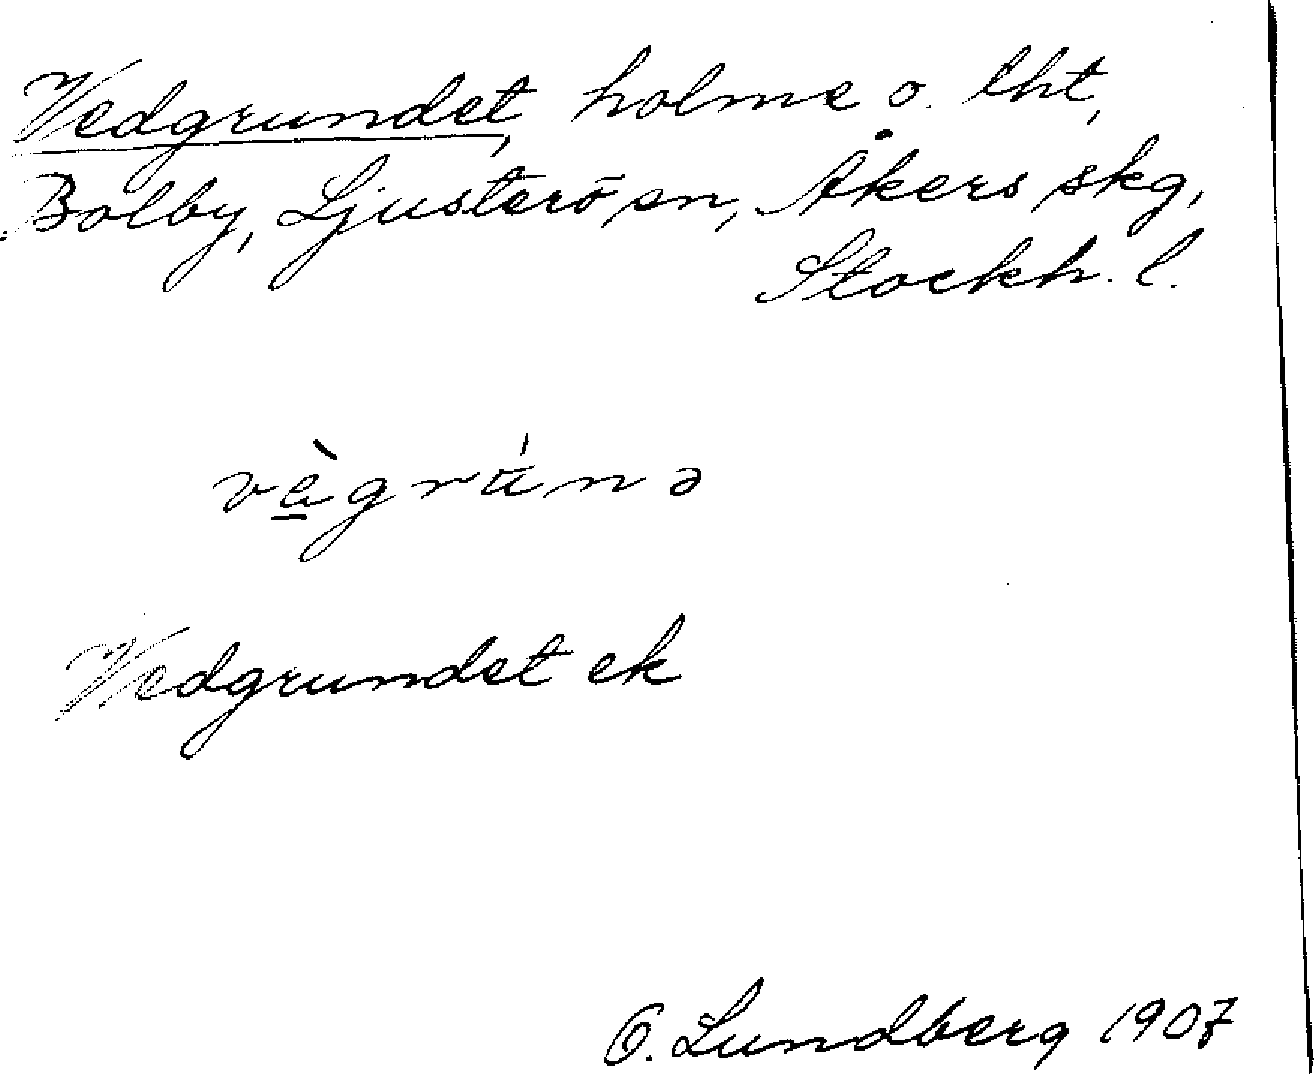 Vedgrundet, holme o. lht,
Bolby, Ljusterö sn, Åkers skg,
Stockh. l.
vègrúnə
Vedgrundet ek
O. Lundberg 1907